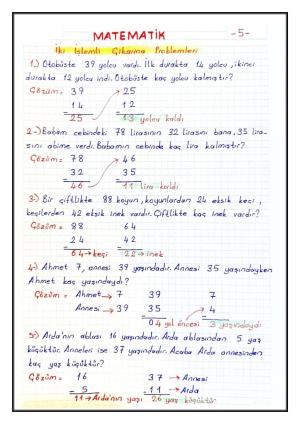 MATEMATİK -5-
İki İşlemli Çıkarma Problemleri
1.) Otobüste 39 yolcu vardı. İlk durakta 14 yolcu, ikinci
durakta 12 yolcu indi. Otobüste kaç yolcu kalmıştır?
Çözüm= 39 25
14 12
25 13 yolcu kaldı
2-) Babam cebindeki 78 lirasının 32 lirasını bana, 35 lira-
sını abime verdi. Babamın cebinde kaç lira kalmıştır?
Çözüm= 78 46
32 35
46 11 lira kaldı
3-) Bir çiftlikte 88 koyun, koyunlardan 24 eksik keçi,
keçilerden 42 eksik inek vardır. Çiftlikte kaç inek vardır?
Çözüm= 88 64
24 42
64→keçi 22→inek
4-) Ahmet 7, annesi 39 yaşındadır. Annesi 35 yaşındayken
Ahmet kaç yaşındaydı?
Çözüm= Ahmet→ 7 39 7
Annesi→ 39 35 4
04 yıl öncesi 3 yaşındaydı
5-) Arda'nın ablası 16 yaşındadır. Arda ablasından 5 yaş
küçüktür. Anneleri ise 37 yaşındadır. Acaba Arda annesinden
kaç yaş küçüktür?
Çözüm= 16 37→Annesi
5 11→Arda
11→Arda'nın yaşı 26 yaş küçüktür